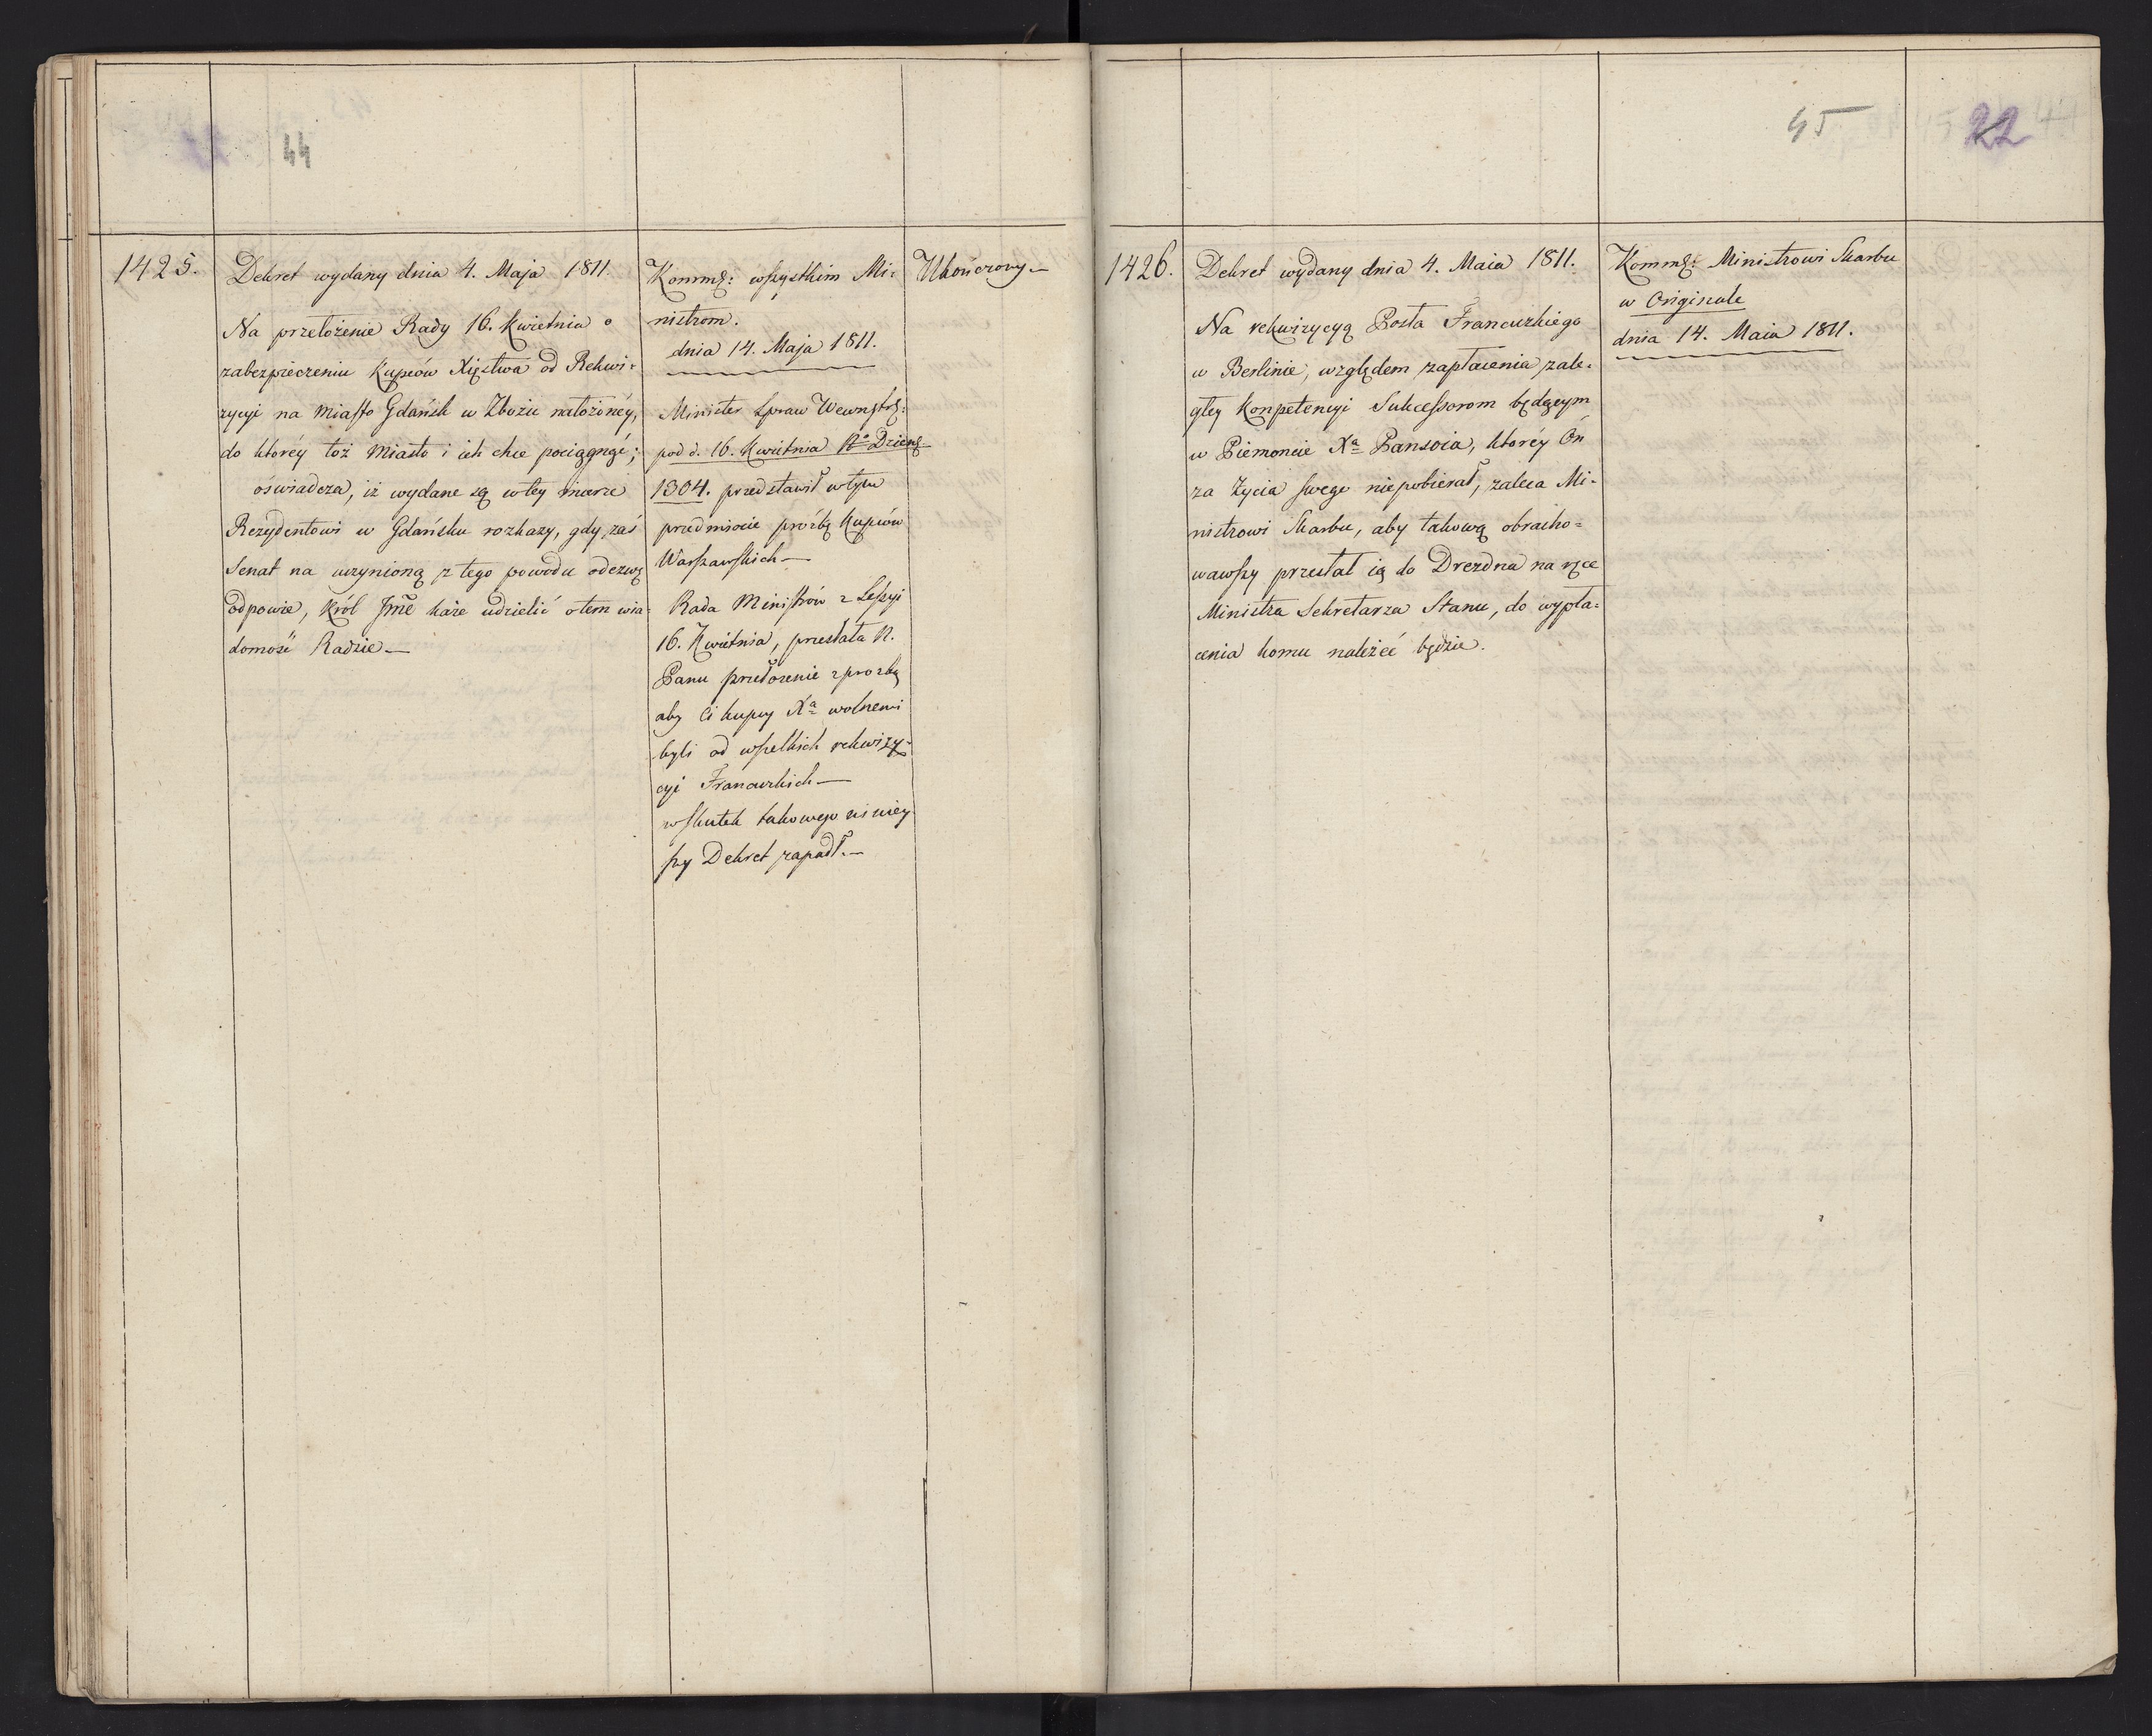 44
1425.
Dekret wydany dnia 4. Maja 1811.
Na przełożenie Rady 16. Kwietnia o
zabezpieczeniu Kupców Xięstwa od Rekwi-
zycyi na miasto Gdańsk w Zbożu nałożonéy,
do któréy toż Miasto i ich chce pociągnąć;
oświadcza, iż wydane są w tey mierze
Rezydentowi w Gdańsku rozkazy, gdy zaś
Senat na uczynioną z tego powodu odezwę
odpowie, Król Jmć każe udzielić o tem wia-
domość Radzie —
Kommꝫ: wszystkim Mi-
nistrom.
dnia 14. Maja 1811.
Minister Spraw Wewnętrꝫ:
pod d. 16. Kwietnia No Dzienꝫ
1304. przedstawił w tym
przedmiocie prośbę Kupców
Warszawskich —
Rada Ministrów z Sessyi
16. Kwietnia, przesłała N.
Panu przełożenie z prozbą
aby Ci kupcy Xa wolnemi
byli od wszelkich rekwizy-
cyi Francuzkich —
w skutek takowego niniey-
szy Dekret zapadł. —
Ukończony —
45
22
1426.
Dekret wydany dnia 4. Maia 1811.
Na rekwizycyą Posła Francuzkiego
w Berlinie, względem zapłacenia zale-
głey Konpetencyi Sukcessorom będącym
w Piemoncie Xa Pansoia, któréy Ón
za Życia swego niepobierał, zaleca Mi-
nistrowi Skarbu, aby takową obracho-
wawszy przesłał ią do Drezdna na ręce
Ministra Sekretarza Stanu, do wypła-
cenia komu należéć będzie.
Kommꝫ: Ministrowi Skarbu
w Originale
dnia 14. Maia 1811.